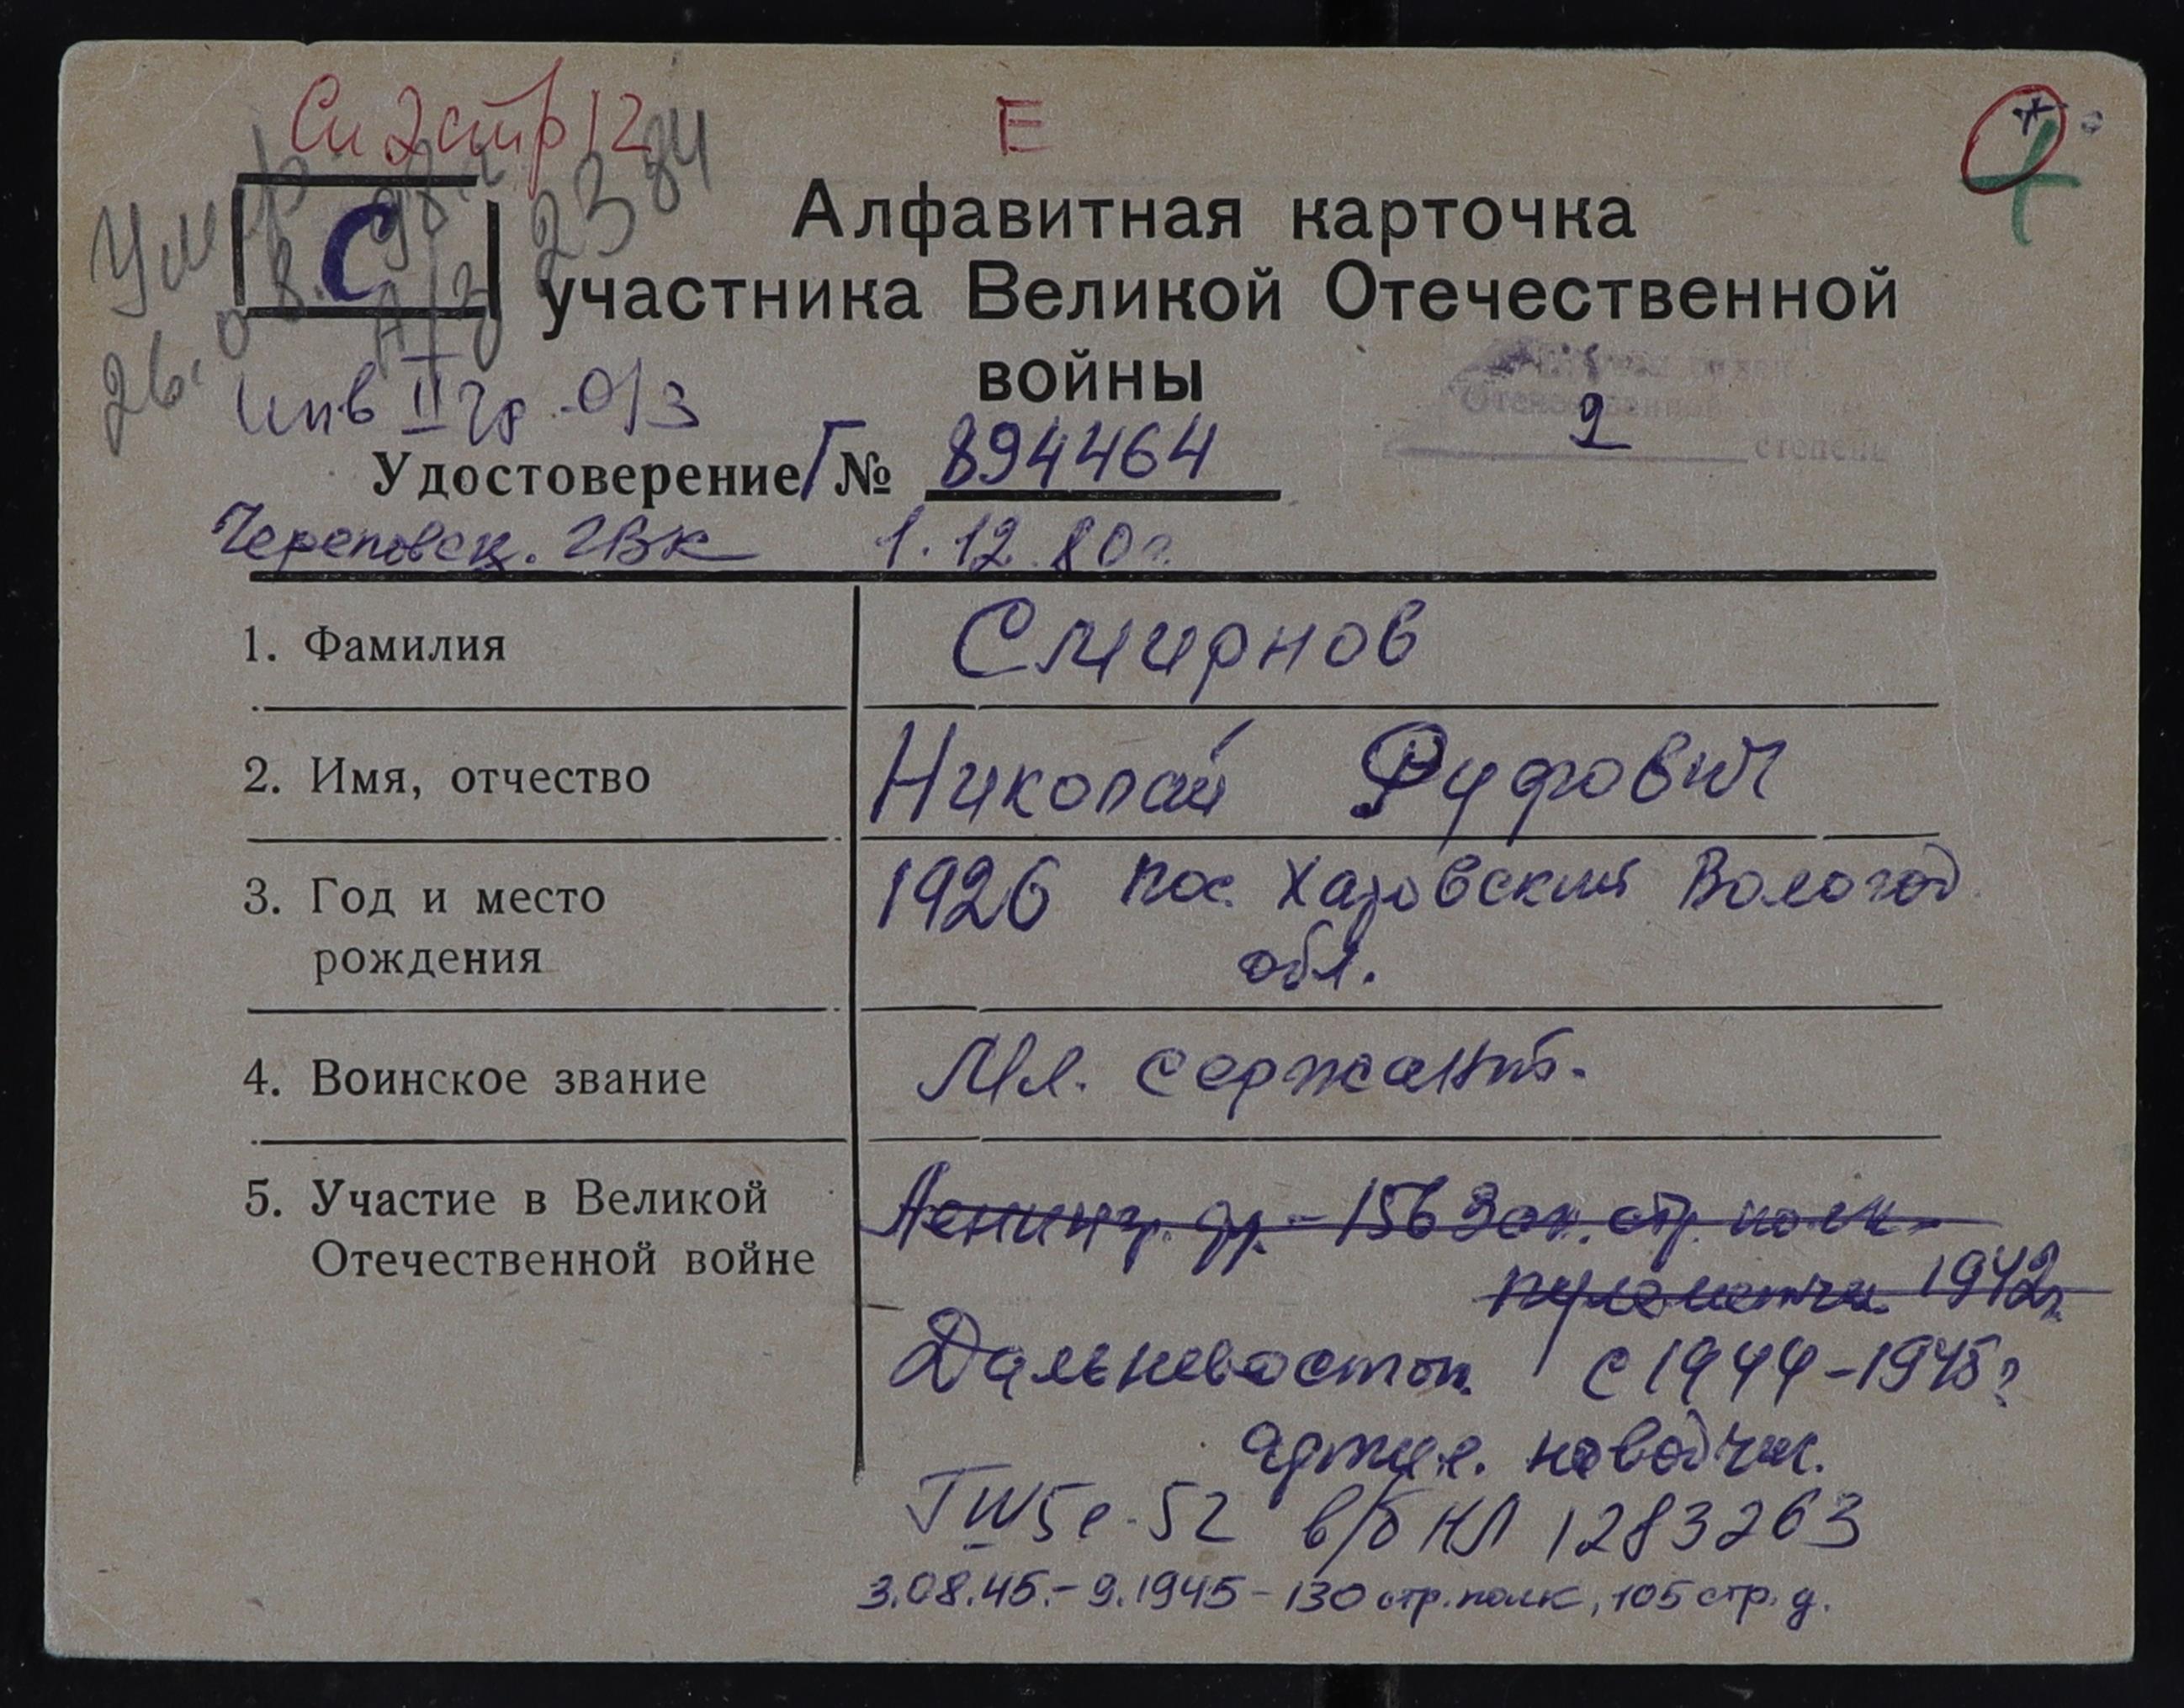 См 2 стр 12
Е
Умер
26.08.98 г
А/З 2384
С
Алфавитная карточка
участника Великой Отечественной
войны
инв II гр. О/З
Отечественной войны
2
степень
Удостоверение Г № 894464
Череповецк. ГВК 1.12.80 г.
1. Фамилия Смирнов
2. Имя, отчество Николай Руфович
3. Год и место 1926 пос. Харовский Вологод
рождения обл.
4. Воинское звание Мл. сержант.
5. Участие в Великой Ленингр. фр. - 156 Зап. стр. полк -
Отечественной войне пулеметчик 1942 г.
Дальневосточ. с 1944 - 1945 г
артил. наводчик.
в/б НЛ 1283263
3.08.45. - 9.1945 - 130 стр. полк, 105 стр. д.